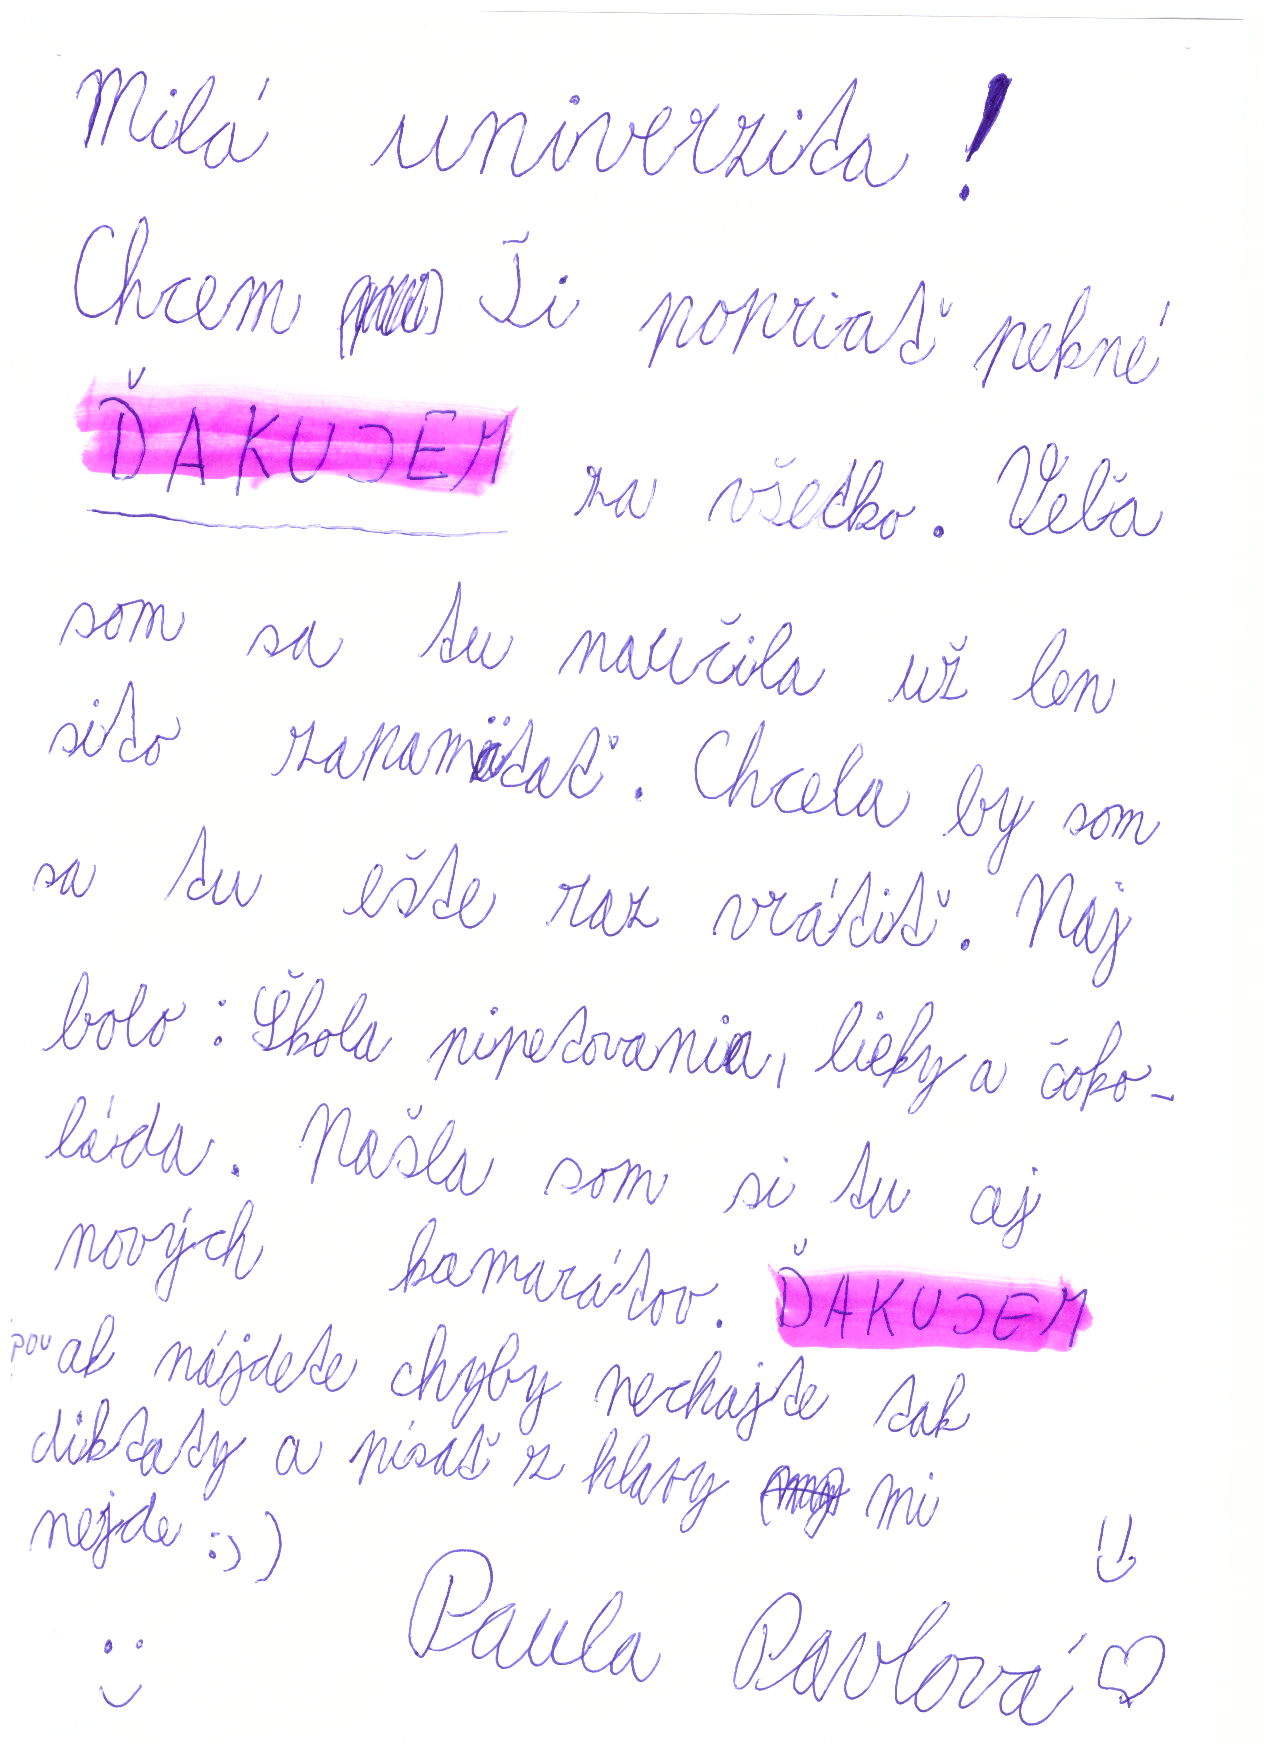 Milá univerzita!
Chcem Ti popriať pekné
ĎAKUJEM za všetko. Veľa
som sa tu naučila už len
sito zapamätať. Chcela by som
sa tu ešte raz vrátiť. Naj
bolo: Škola pipetovania, lieky a čoko-
láda. Našla som si tu aj
nových kamarátov. ĎAKUJEM
pou ak nájdete chyby nechajte tak
diktaty a písať z hlavy mi
nejde :))
Paula Pavlová